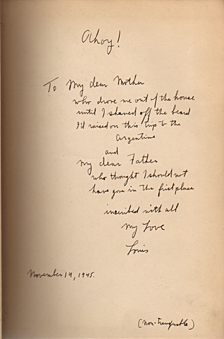 Ahoy!
To My dear Mother
who drove me out of the house
until I shaved off the beard
I'd raised on this trip to the
Argentine
and
My dear Father
who thought I should not
have gone in the first place
inscribed with all
My Love
Louis
November 14, 1945.
(Non-transferable)